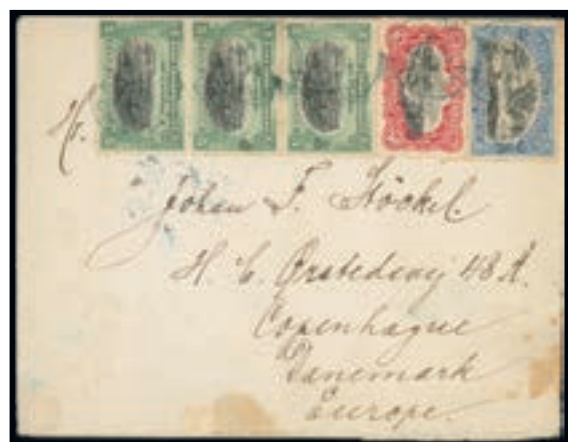 Hr.
Johan F. Støckel.
H. C. Ørstedsvej 48 A.
Copenhague
Danemark
Europe.